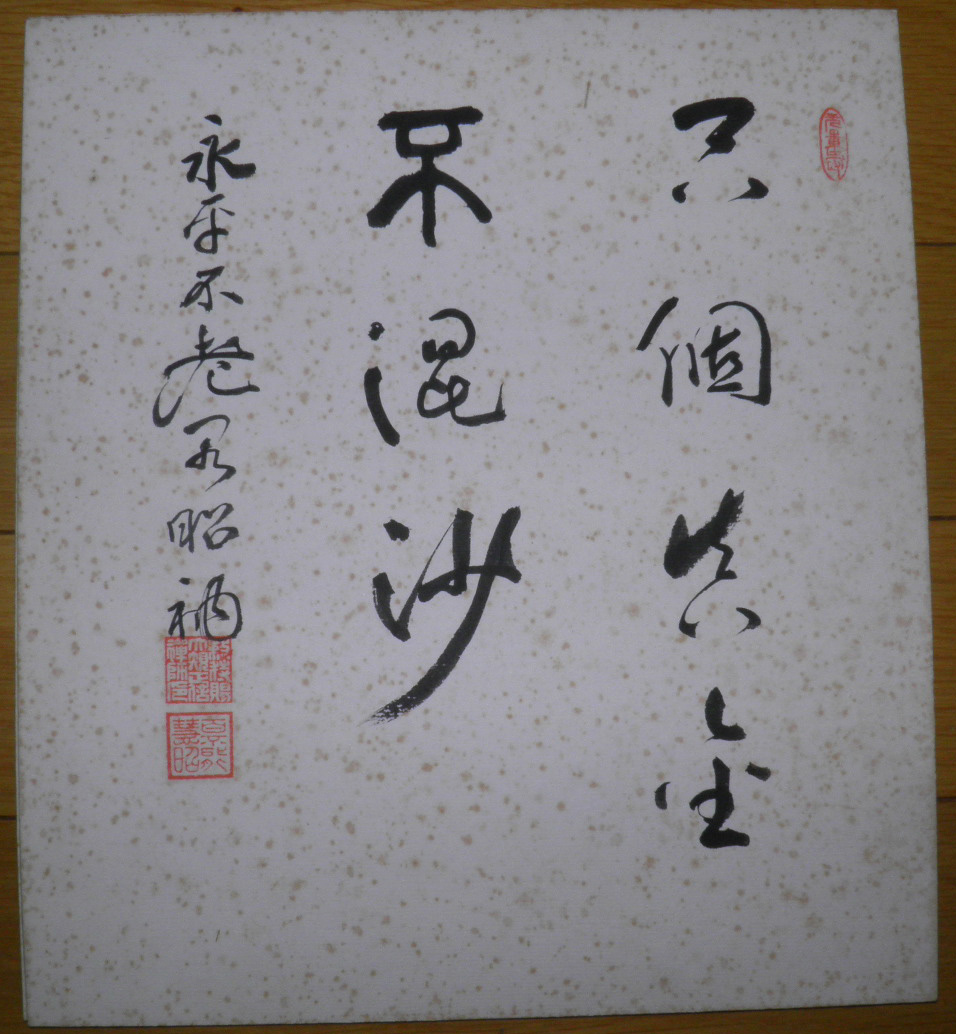 只個真金
不混沙
永平不老閣昭衲